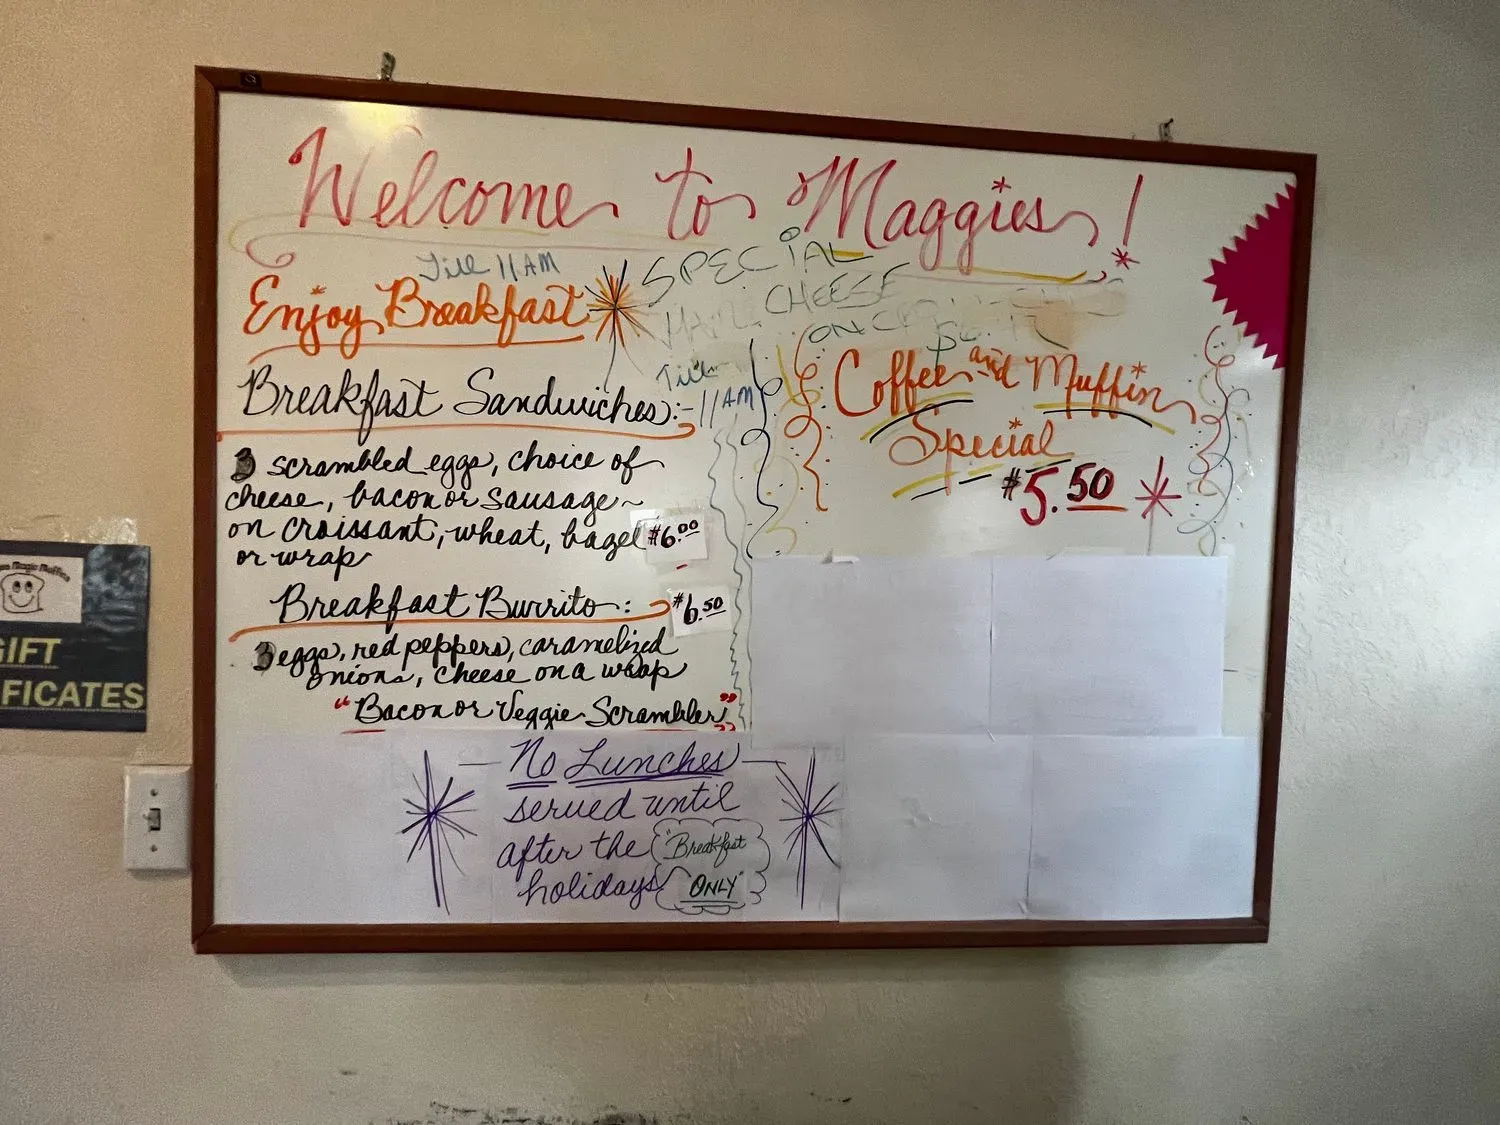 Welcome to Maggies!
Till 11 AM
Enjoy Breakfast
SPECIAL
HAM CHEESE
ON
Breakfast Sandwiches:-
Till
11 AM
3 scrambled eggs, choice of
cheese, bacon or sausage~
on croissant, wheat, bagel
or wrap
$6.00
Breakfast Burrito:
$6.50
3 eggs, red peppers, caramelized
onions, cheese on a wrap
"Bacon or Veggie Scrambler"
Coffee and Muffin
Special
$5.50
No Lunches
served until
after the
holidays
"Breakfast
ONLY"
GIFT
FICATES